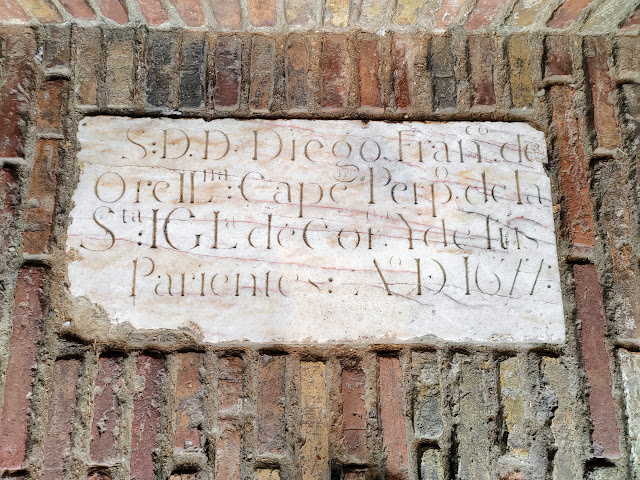 S: D. D. Diego. Fran.co de
Orell.na: Cap.en Perp.o de la
S.ta IGL.a de Cor. Y de sus
Parientes: A.o D. 1677: